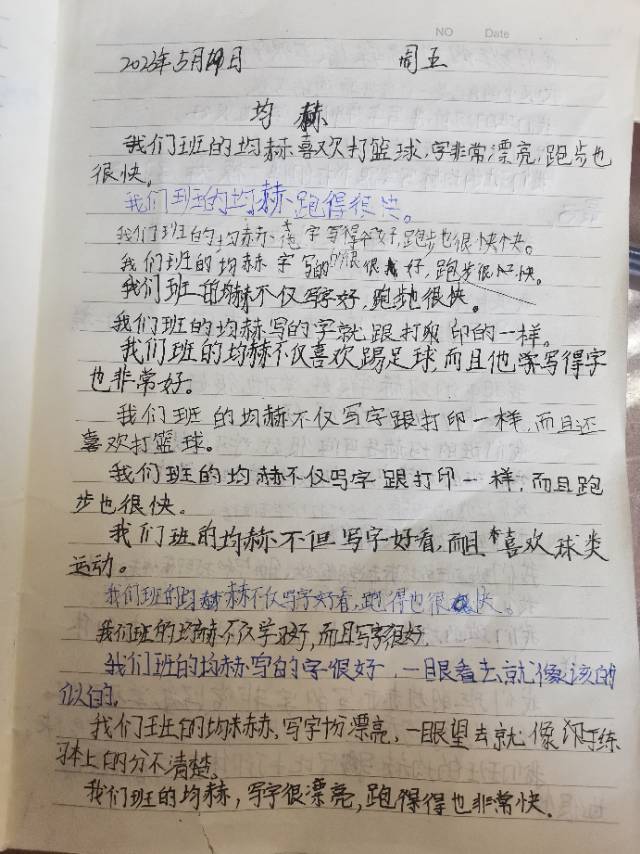 NO Date
2023年5月19日 周五
均赫
我们班的均赫喜欢打篮球,字非常漂亮,跑步也
很快。
我们班的均赫跑得很快。
我们班的均赫 字写得 好,跑步也很快快。
我们班的均赫字写的 很 好,跑步很 快。
我们班的均赫不仅写字好,跑步也很快。
我们班的均赫写的字就跟打印 印的一样。
我们班的均赫不仅喜欢踢足球,而且他 写得字
也非常好。
我们班的均赫不仅写字跟打印一样,而且还
喜欢打篮球。
我们班的均赫不仅写字跟打印一样,而且跑
步也很快。
我们班的均赫不但写字好看,而且 喜欢球类
运动。
我们班的均 赫不仅写字好看,跑得也很 快。
我们班的均赫不仅学习好,而且写字很好。
我们班的均赫写的字很好,一眼看去就像 的
似的。
我们班的均 赫,写字 漂亮,一眼望去就像 练
习本上的分不清楚。
我们班的均赫,写字很漂亮,跑 得也非常快.